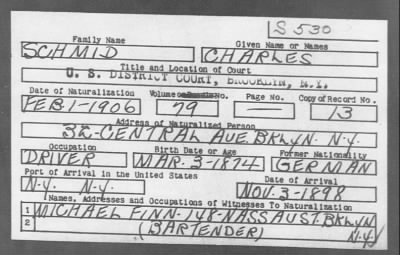 S 530
Family Name Given Name or Names
SCHMID CHARLES
Title and Location of Court
U. S. DISTRICT COURT, BROOKLYN, N.Y.
Date of Naturalization Volume No. Page No. Copy of Record No.
FEB. 1-1906 79 — 13
Address of Naturalized Person
CENTRAL AVE. BKLYN. N.Y.
Occupation Birth Date or Age Former Nationality
DRIVER MAR. 3-1874 GERMAN
Port of Arrival in the United States Date of Arrival
N.Y. N.Y. NOV. 3-1898
Names, Addresses and Occupations of Witnesses To Naturalization
1 MICHAEL FINN-148-NASSAU ST. BKLYN
2 (BARTENDER) N.Y.